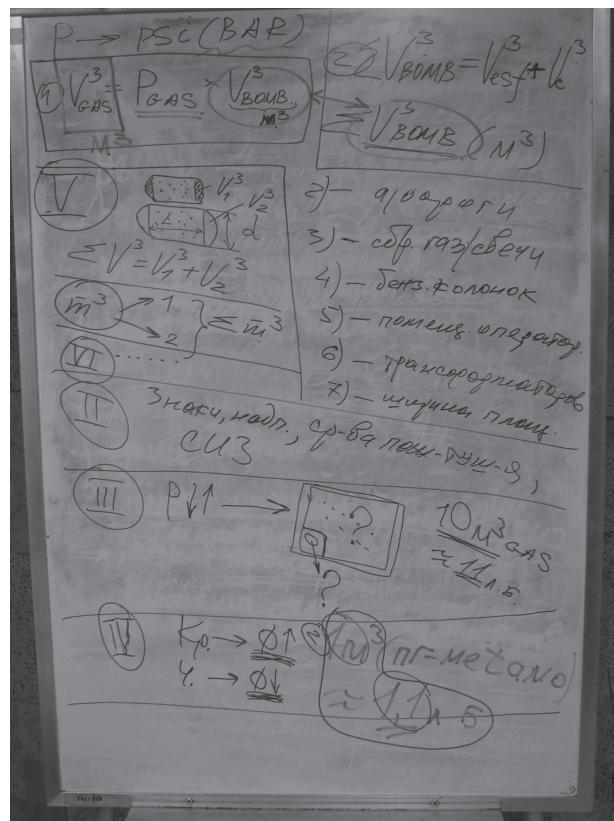 P → PSC (BAR)
1) V³GAS = PGAS × V³BOMB., м³
М³
2) V³BOMB = V³esf + V³c
Σ V³BOMB (м³)
V
V₁³
V₂³
L
d
ΣV³ = V₁³ + V₂³
m³ → 1
→ 2
Σm³
VI ......
2) – а/дороги
3) – сбр. газ/свечи
4) – бенз. колонок
5) – помещ. оператор.
6) – трансформаторов
7) – ширина площ.
II Знаки, надп., ср-ва пож-туш-я,
СИЗ
III P↓↑ → ?
?
10 м³ GAS
≈ 11 л.Б.
IV Кр. → Ø↑
Ч. → Ø↓
2) 1м³ (пг=метано)
≈ 1,1 л Б